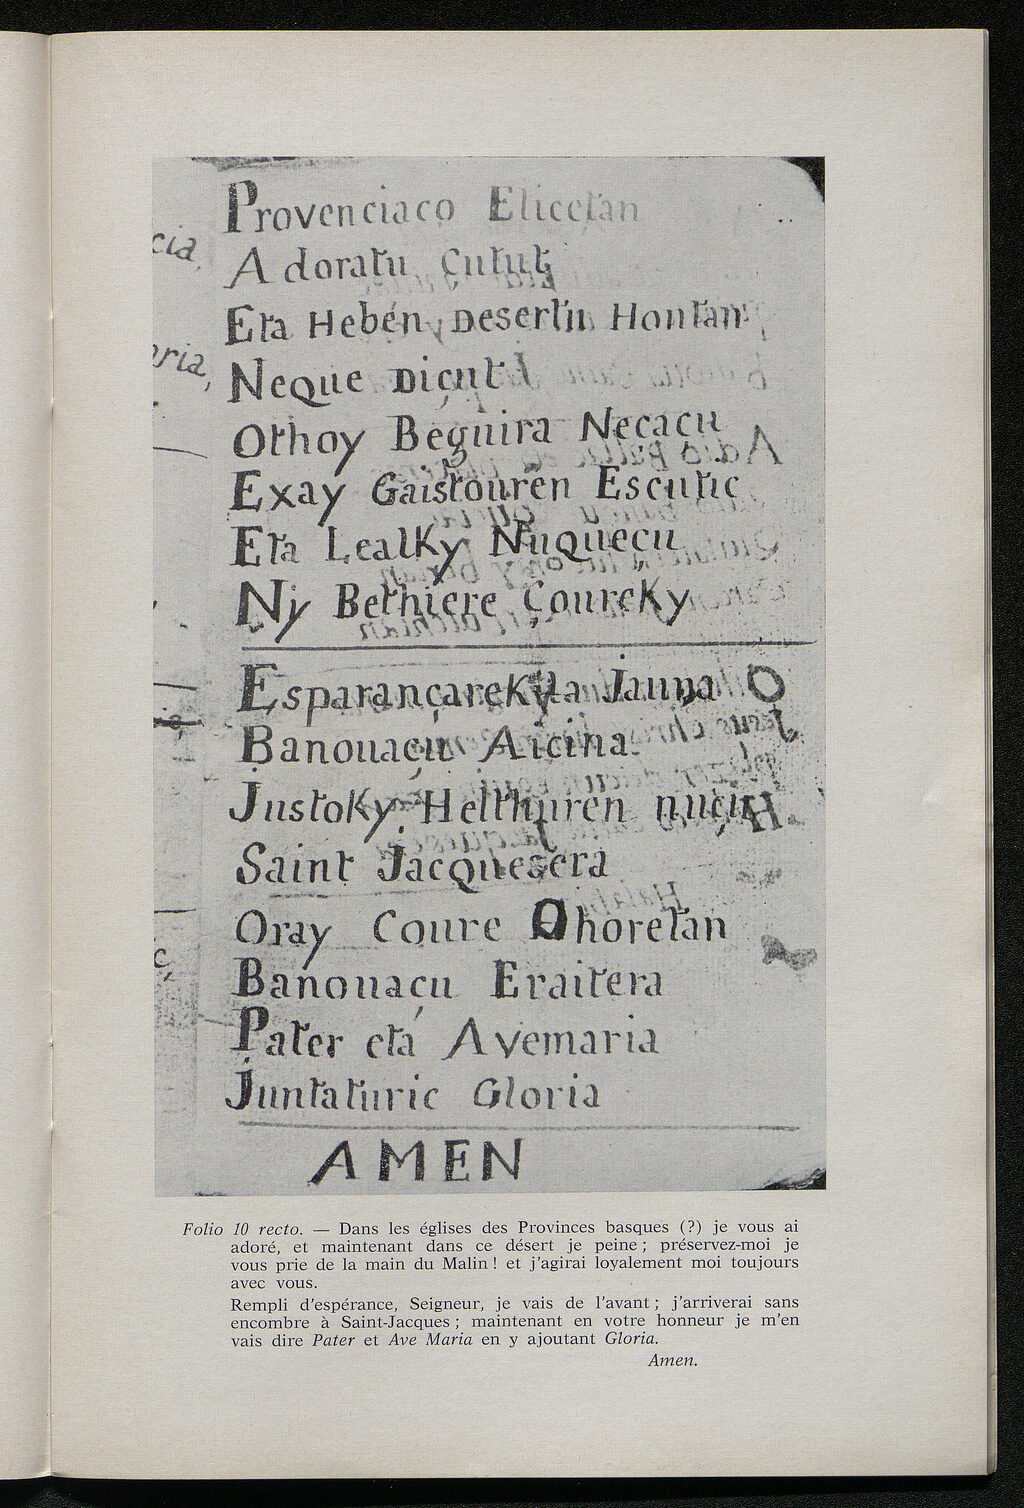 cia,
oria,
Provenciaco Elicetan
Adoratu Çutut
Eta Heben Desertu Hontan
Neque Diçut
Othoy Beguira Neçaçu
Exay Gaistouren Escutic
Eta Lealky Nuqueçu
Ny Bethiere Çoureky
Esparançareky ta Jauna O
Banouaçu Aicina
Justoky Helthuren nuçu
Saint Jacquesera
Oray Çoure Ohoretan
Banouaçu Eraitera
Pater eta Avemaria
Juntaturic Gloria
AMEN
Folio 10 recto. — Dans les églises des Provinces basques (?) je vous ai
adoré, et maintenant dans ce désert je peine ; préservez-moi je
vous prie de la main du Malin ! et j'agirai loyalement moi toujours
avec vous.
Rempli d'espérance, Seigneur, je vais de l'avant ; j'arriverai sans
encombre à Saint-Jacques ; maintenant en votre honneur je m'en
vais dire Pater et Ave Maria en y ajoutant Gloria.
Amen.